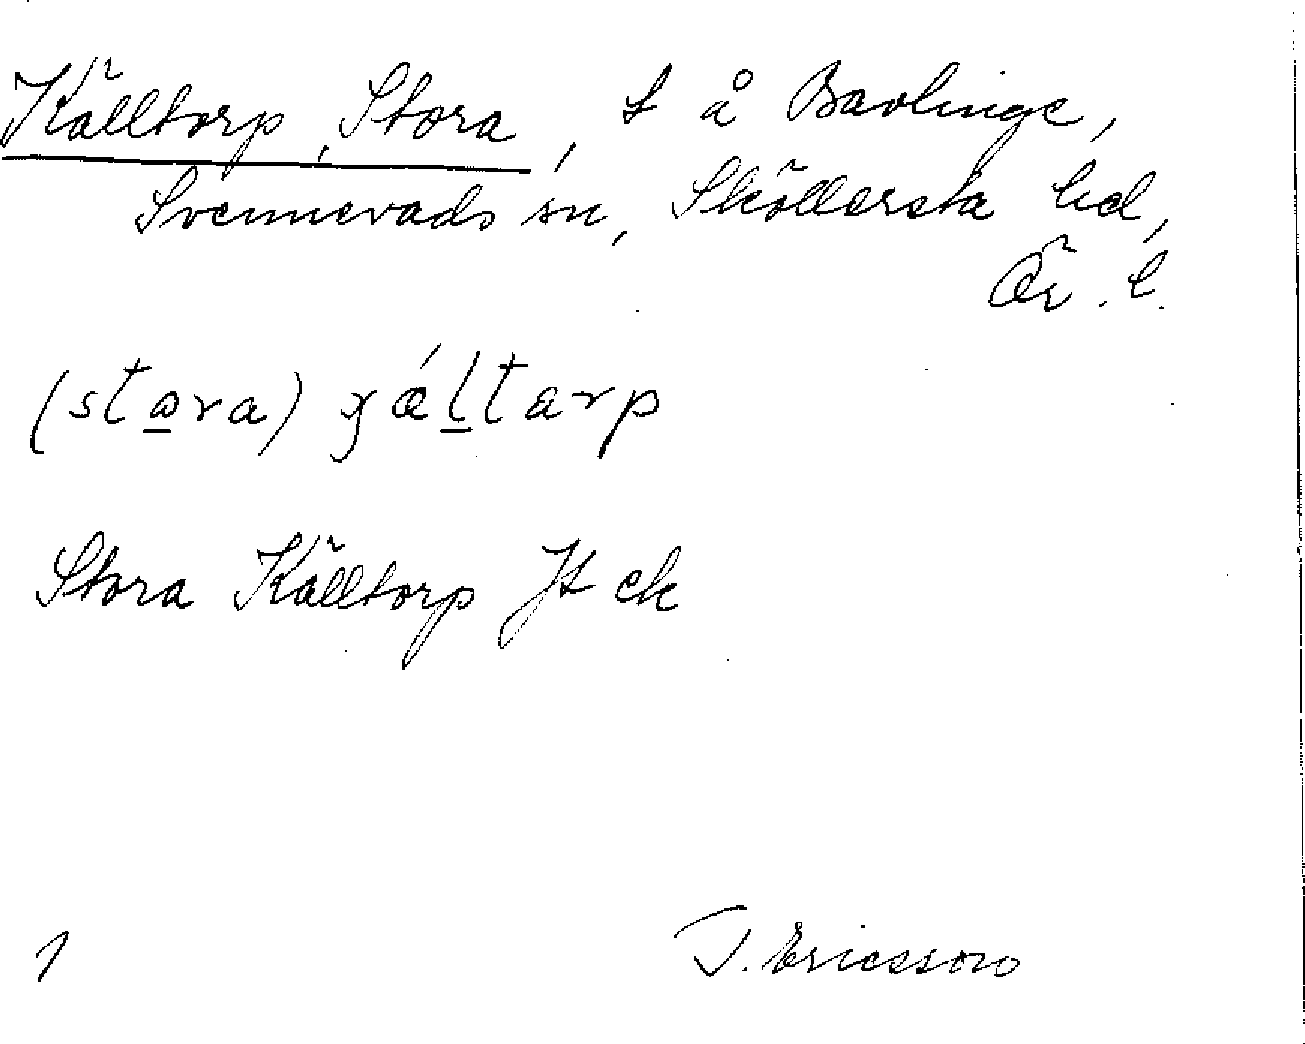 Källtorp, Stora, t å Bavlinge,
Svennevads sn, Sköllersta hd,
Ör. l.
(stora) gáltarp
Stora Källtorp Jt ek
1
J. Ericsson